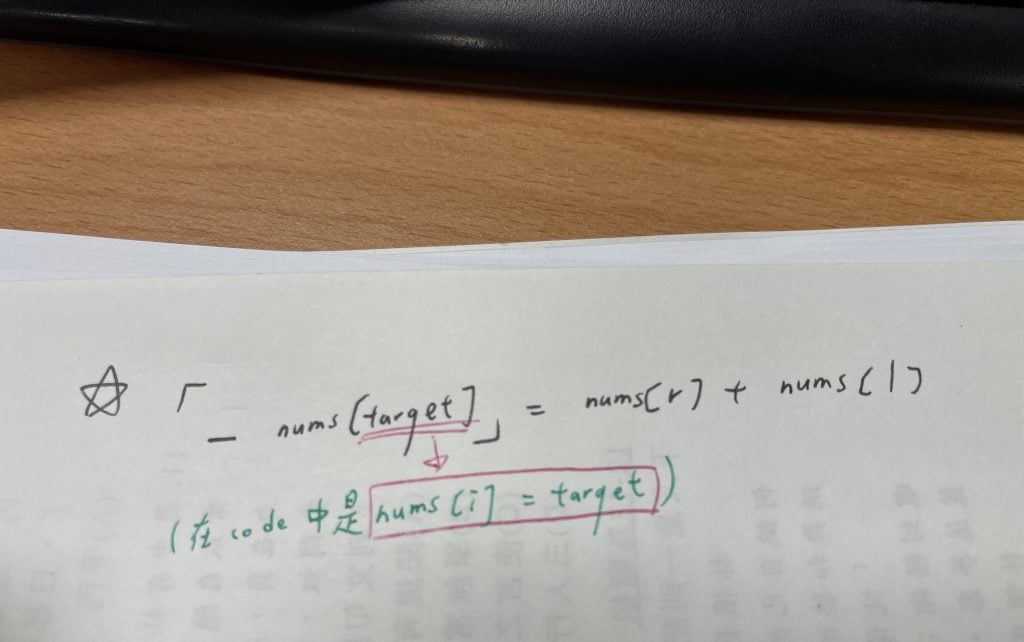 ☆ 「 - nums[target]」 = nums[r] + nums[l]
(在 code 中是 nums[i] = target)